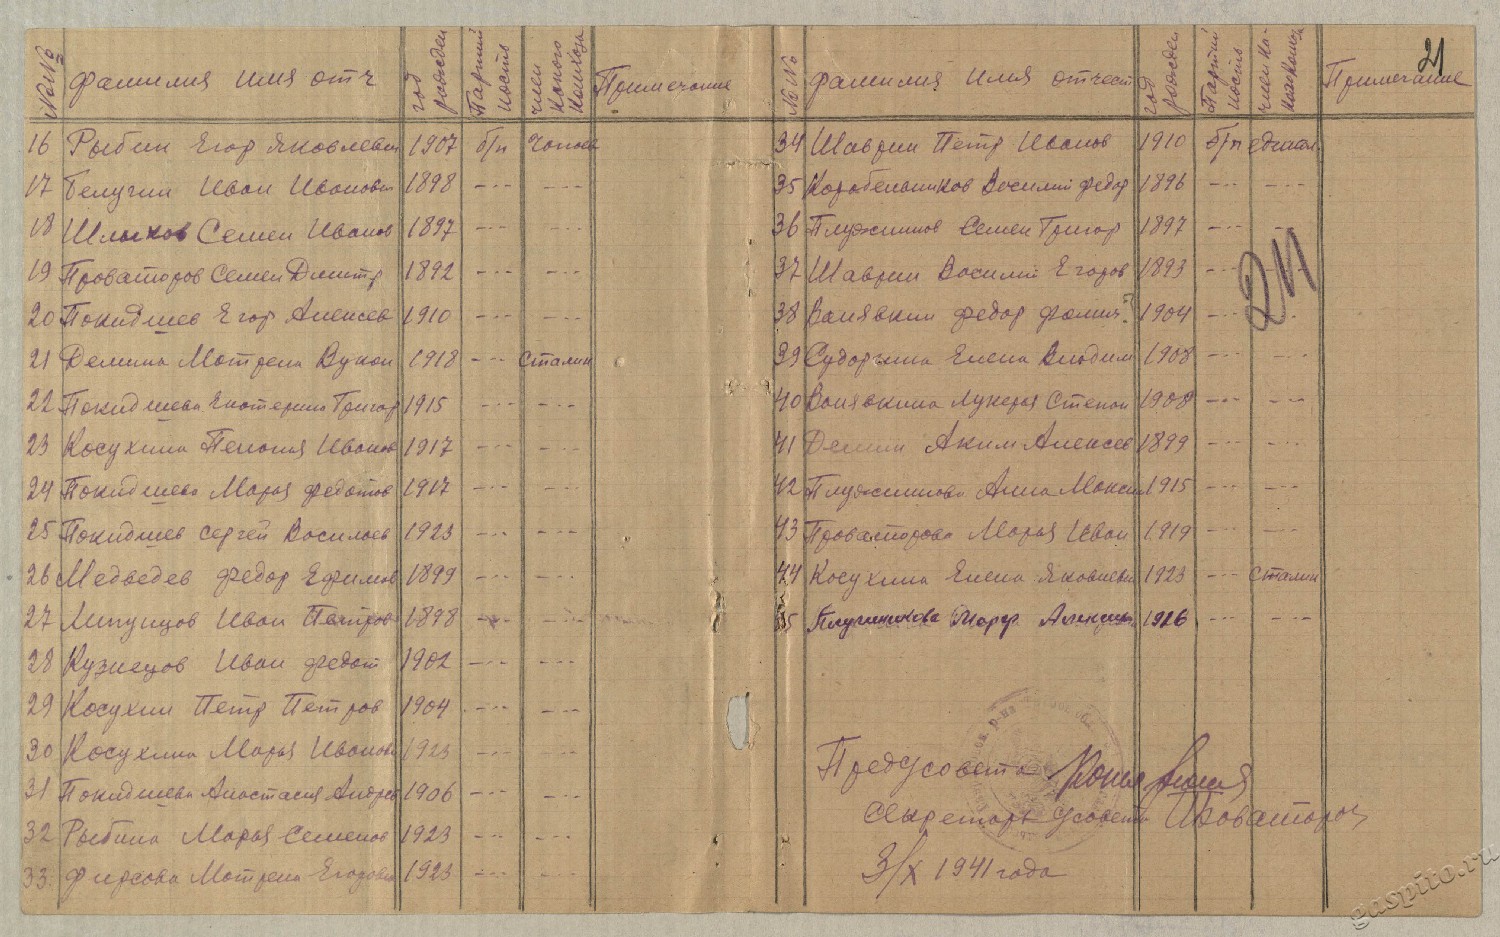 21
№№ фамилия имя отч год рожден Партий ность член какого колхоза Примечание
16 Рыбин Егор Яковлевич 1907 б/п Чапаев
17 Белугин Иван Иванович 1898 -"- -"-
18 Шлыков Семен Иванов 1897 -"- -"-
19 Проваторов Семен Дмитр 1892 -"- -"-
20 Покидышев Егор Алексеев 1910 -"- -"-
21 Демина Мотрена Вукол 1918 -"- Сталин
22 Покидышева Екотерина Григор 1915 -"- -"-
23 Косухина Пелогия Иванов 1917 -"- -"-
24 Покидышева Марья федотов 1917 -"- -"-
25 Покидышев Сергей Василаев 1923 -"- -"-
26 Медведев федор Ефимов 1899 -"- -"-
27 Липунцов Иван Петров 1898 -"- -"-
28 Кузнецов Иван федот 1902 -"- -"-
29 Косухин Петр Петров 1904 -"- -"-
30 Косухина Марья Иванов 1923 -"- -"-
31 Покидышева Анастасия Андрев 1906 -"- -"-
32 Рыбина Марья Семенов 1923 -"- -"-
33 фирсова Мотрена Егоровна 1923 -"- -"-
№№ фамилия имя отчест год рожден Партий ность член ка- колхоза Примечание
34 Шаврин Петр Иванов 1910 б/п
35 Коробельников Василий федор 1896 -"- -"-
36 Плужников Семен Григор 1897 -"- -"-
37 Шаврин Василий Егоров 1893 -"- -"-
38 федор фомич 1904 -"- -"-
39 Судоргина Елена Владим 1908 -"- -"-
40 Лукерья Степан 1908 -"- -"-
41 Демин Аким Алексеев 1899 -"- -"-
42 Плужникова Анна Максим 1915 -"- -"-
43 Проваторова Марья Иван 1919 -"- -"-
44 Косухина Елена Яковлевн 1923 -"- Сталин
45 Марф 1926 -"- -"-
Предсовета
Секретарь с/совета Проваторов
3/X 1941 года
gaspito.ru